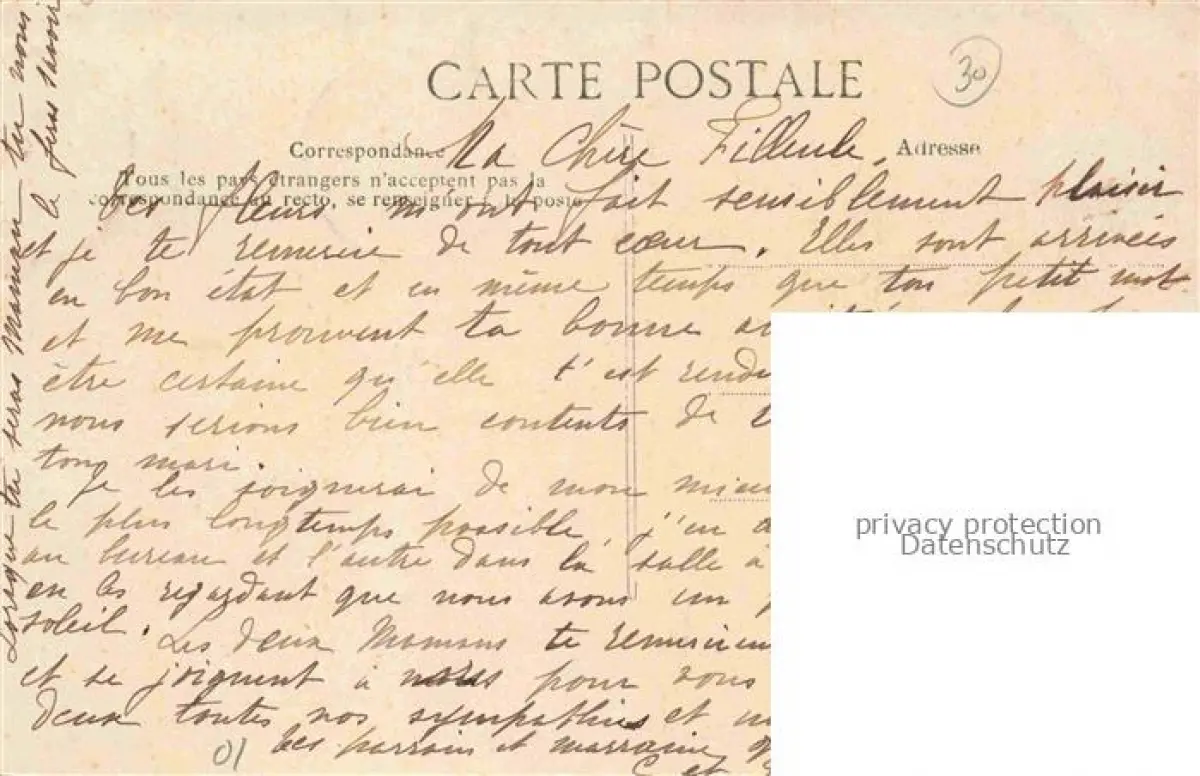 CARTE POSTALE
30
Correspondance
Adresse
Tous les pays étrangers n'acceptent pas la
correspondance au recto, se renseigner à la poste
Ma Chère Filleule,
Tes fleurs m'ont fait sensiblement plaisir
et je te remercie de tout cœur. Elles sont arrivées
en bon état et en même temps que ton petit mot
et me prouvent ta bonne
être certaine qu'elle t'est rendu
nous serions bien contents de
ton mari.
Je les soignerai de mon mieu
le plus longtemps possible, j'en a
au bureau et l'autre dans la salle à
en les regardant que nous avons un
soleil. Les deux Mamans te remercien
et se joignent à nous pour vous
deux toutes nos sympathies et
Tes parrain et marraine,
C et
01
Lorsque tu seras Maman tu nous
le feras savoir
privacy protection
Datenschutz